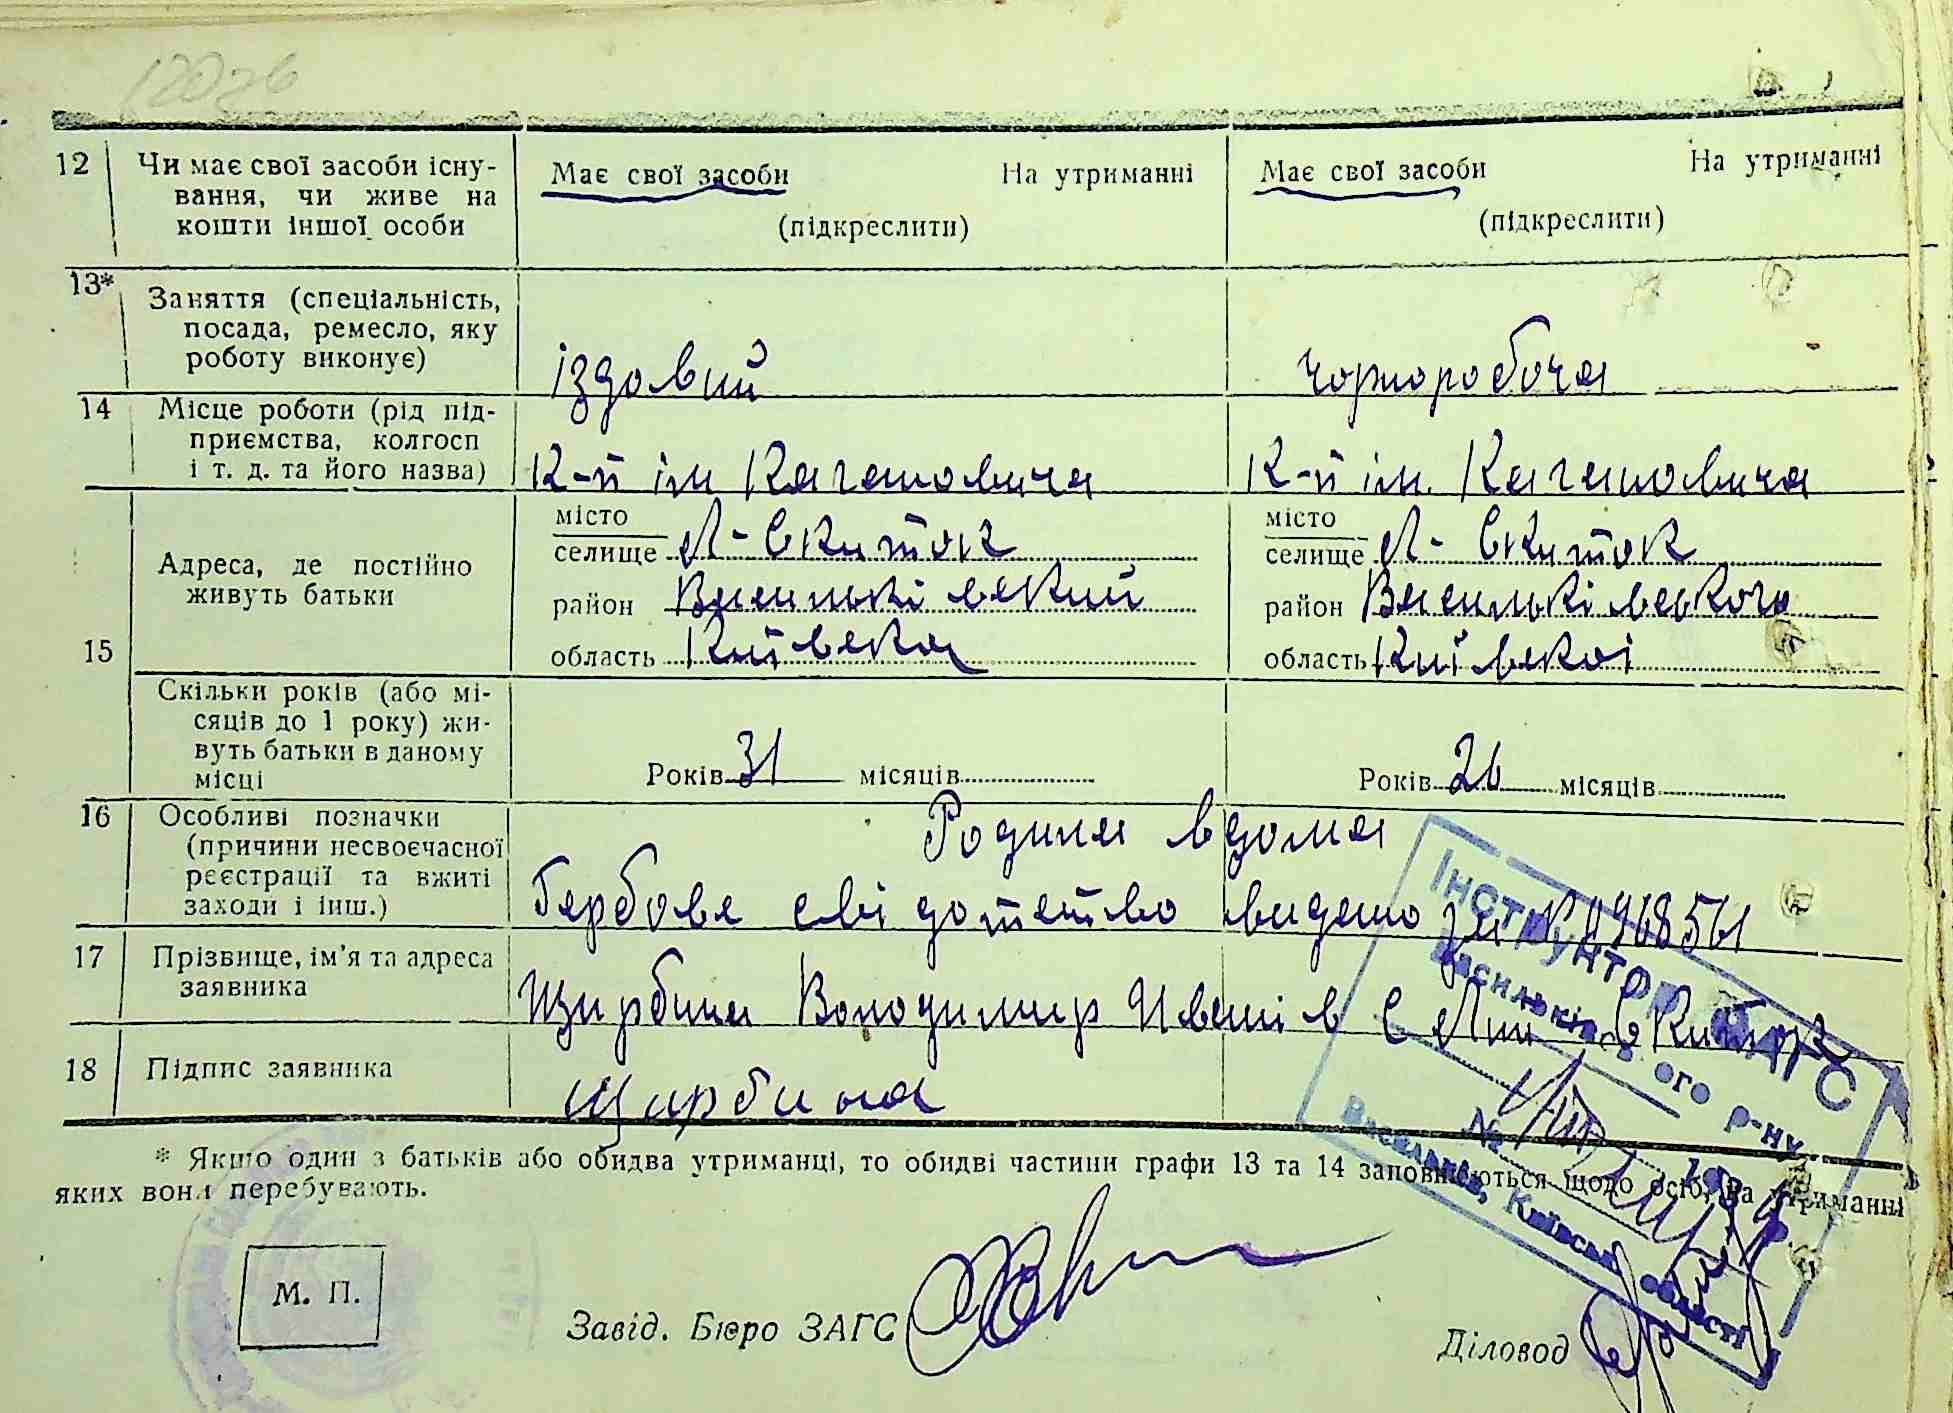 12 Чи має свої засоби існу-
вання, чи живе на
кошти іншої особи
Має свої засоби На утриманні
(підкреслити)
Має свої засоби На утриманні
(підкреслити)
13* Заняття (спеціальність,
посада, ремесло, яку
роботу виконує)
іздовий
чорноробоча
14 Місце роботи (рід під-
приємства, колгосп
і т. д. та його назва)
К-п ім Кагановича
К-п ім. Кагановича
15 Адреса, де постійно
живуть батьки
місто
селище Л-Скиток
район Васильківський
область Київська
місто
селище Л-Скиток
район Васильківського
область Київської
Скільки років (або мі-
сяців до 1 року) жи-
вуть батьки в даному
місці
Років 31 місяців
Років 26 місяців
16 Особливі позначки
(причини несвоєчасної
реєстрації та вжиті
заходи і інш.)
Родина вдома
Гербове свідотство видано за № 0968561
17 Прізвище, ім'я та адреса
заявника
Щирбина Володимир Іванів С Скиток
18 Підпис заявника
Щирбина
* Якщо один з батьків або обидва утриманці, то обидві частини графи 13 та 14 заповнюються щодо осіб, на утриманні
яких вони перебувають.
Інструктор ЗАГС
Васильківського р-ну
№
Васильків, Київськ. області
М. П.
Завід. Бюро ЗАГС
Діловод